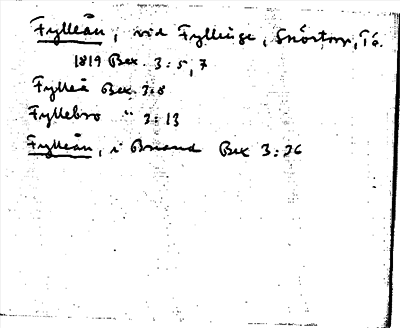 Fylleån, vid Fyllinge, Snöstorp, Tö.
1819 Bex. 3:5,7
Fylleå Bex. 3:8
Fyllebro " 3:13
Fylleån, i Breared Bex 3:36